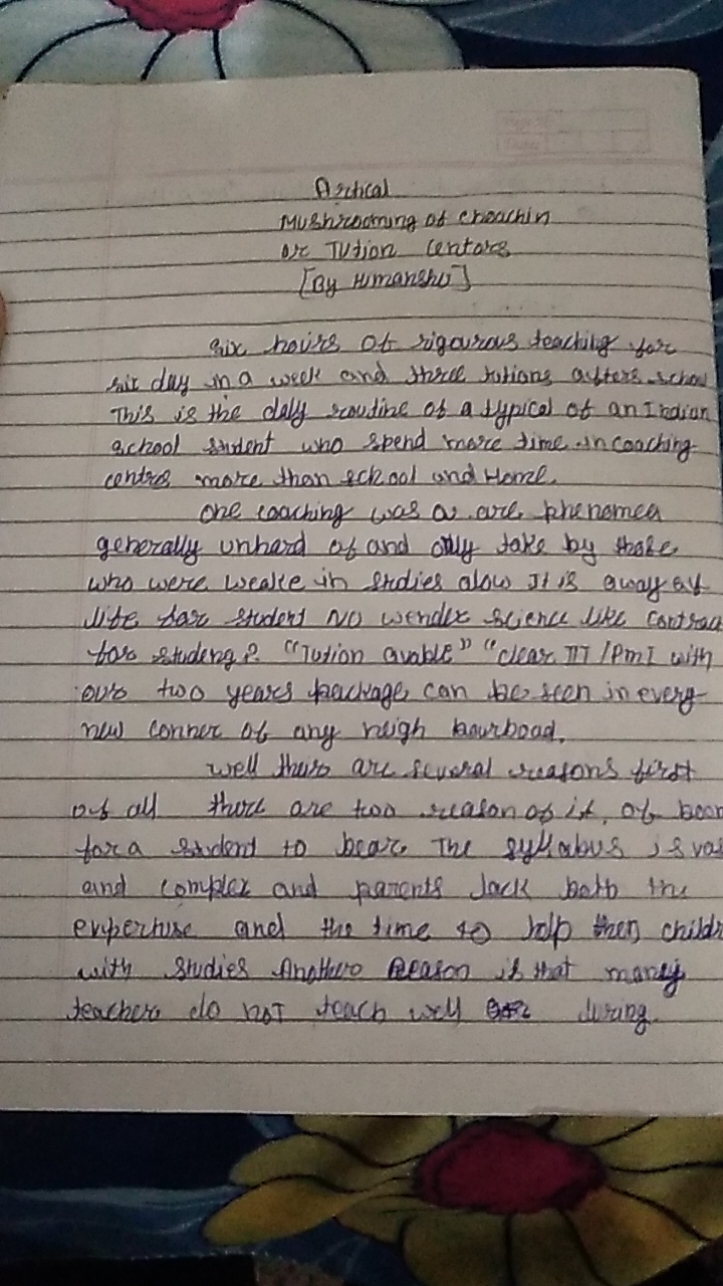 Artical
Mushrooming of choachin
or Tution Centors
[By Himanshu]
six hours of rigourous teaching for
six day in a week and three tutions afters school
This is the daly routine of a typical of an Indian
school student who spend more time in coaching
centres more than school and Home.
one coaching was a are phenomen
generally unhard of and only take by those
who were weake in studies alow It is away of
life for student No wonder science like contrac
for studeng? "Tution avable" "clear IIT/PMT with
ours two years package can be seen in every
new conner of any neigh bourboad.
well thers are several reasons first
of all there are too reason of it, of boor
for a student to bear. The syllabus is vas
and complex and parents lack both the
expertise and the time to help then childr
with studies Anothero Reason is that many
teachers do not teach well during.